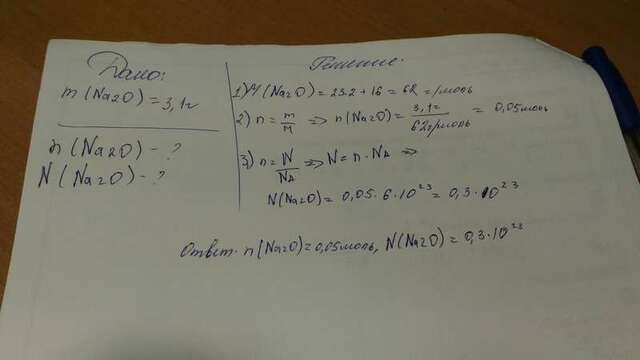 Дано:
m (Na2O) = 3,1г
n (Na2O) - ?
N (Na2O) - ?
Решение:
1) M (Na2O) = 23·2 + 16 = 62 г/моль
2) n = m/M => n(Na2O) = 3,1г/62г/моль = 0,05моль
3) n = N/NA => N = n · NA =>
N(Na2O) = 0,05 · 6 · 10²³ = 0,3 · 10²³
Ответ: n(Na2O) = 0,05моль, N(Na2O) = 0,3·10²³